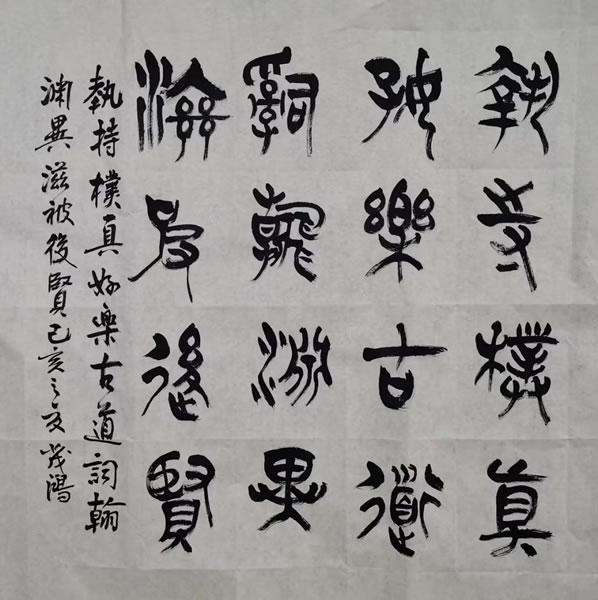 執持樸真
好樂古道
詞翰淵異
滋被後賢
執持樸真好樂古道詞翰
淵異滋被後賢己亥之夏茂鴻